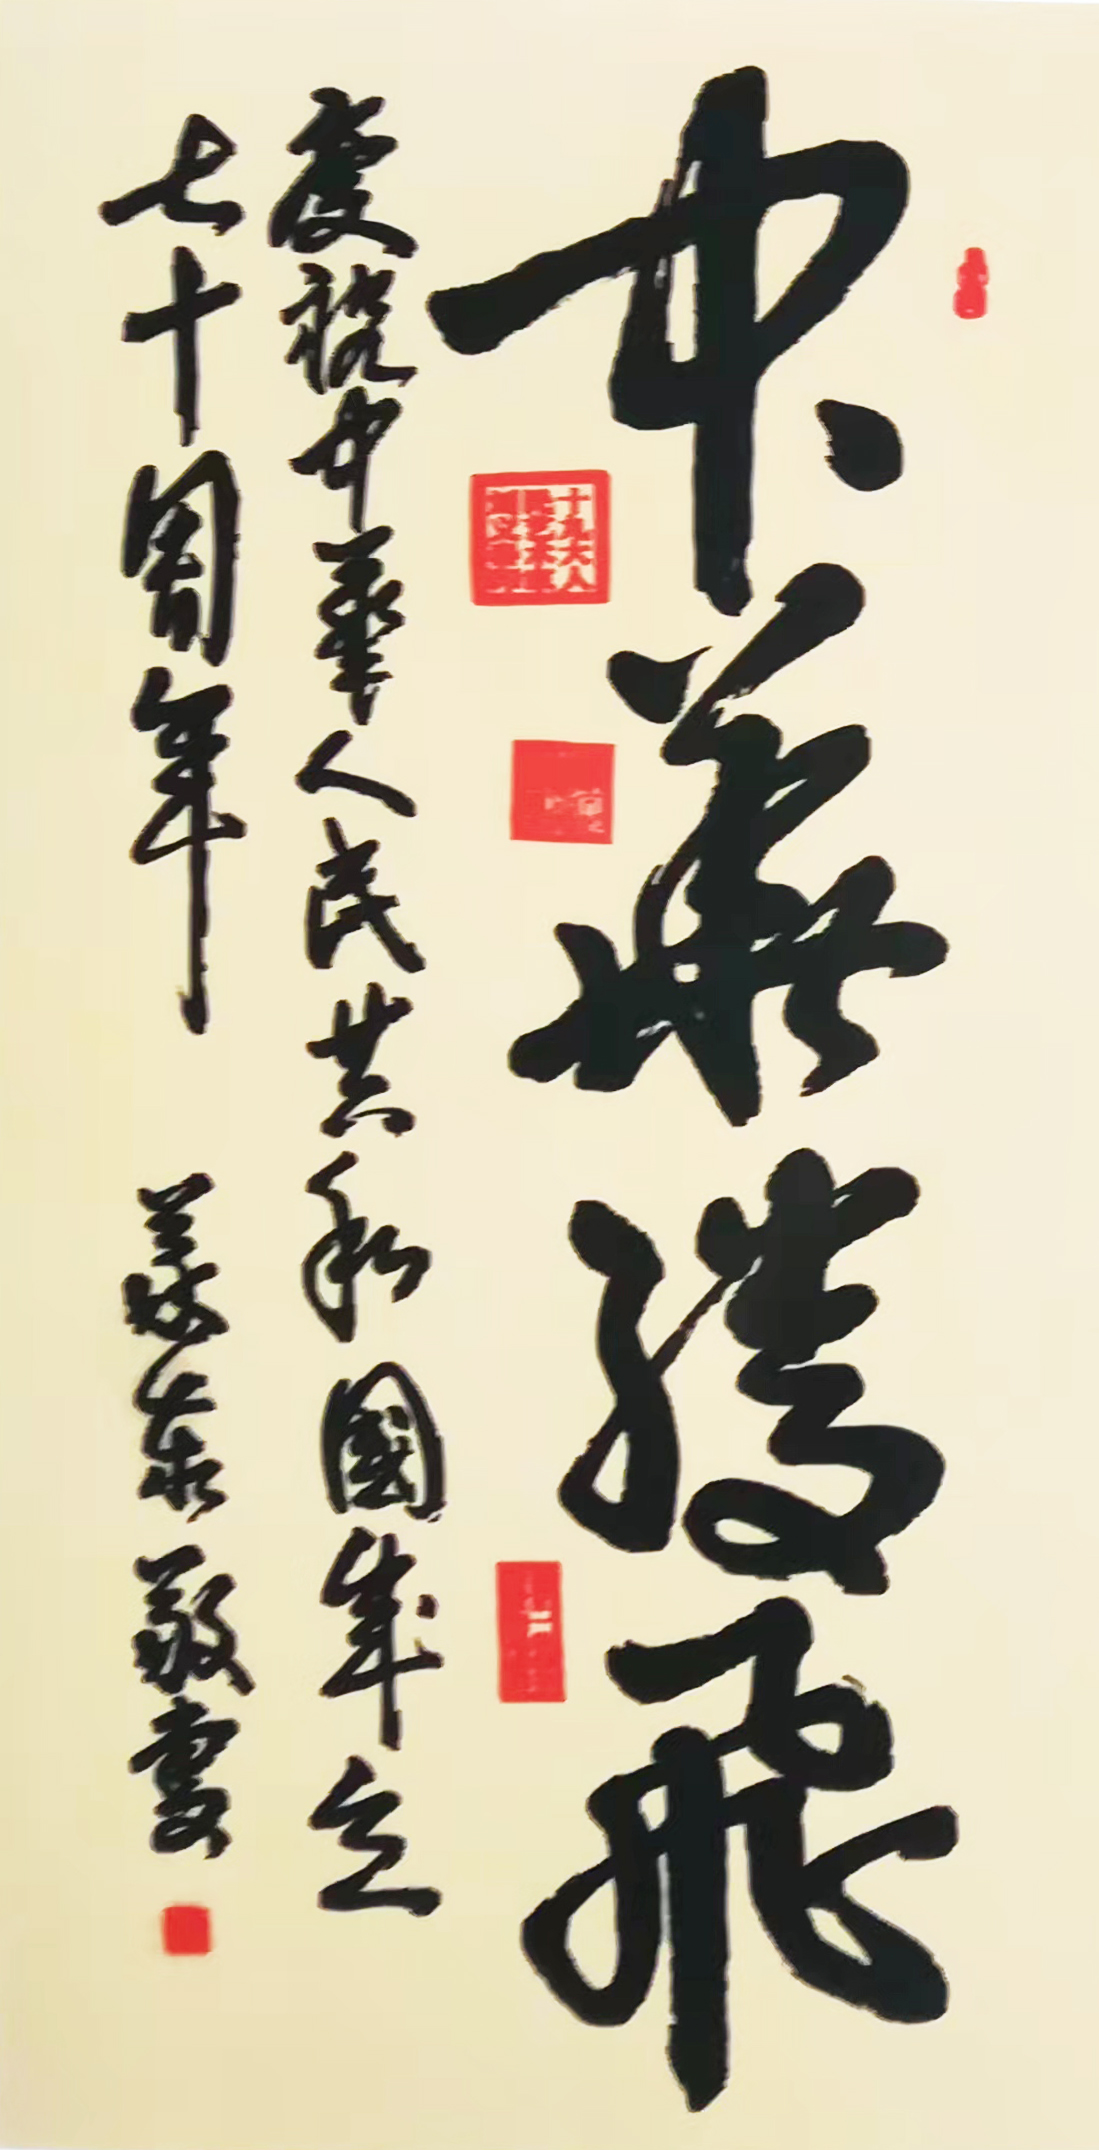 中華騰飛
慶祝中華人民共和國成立
七十周年 敬書